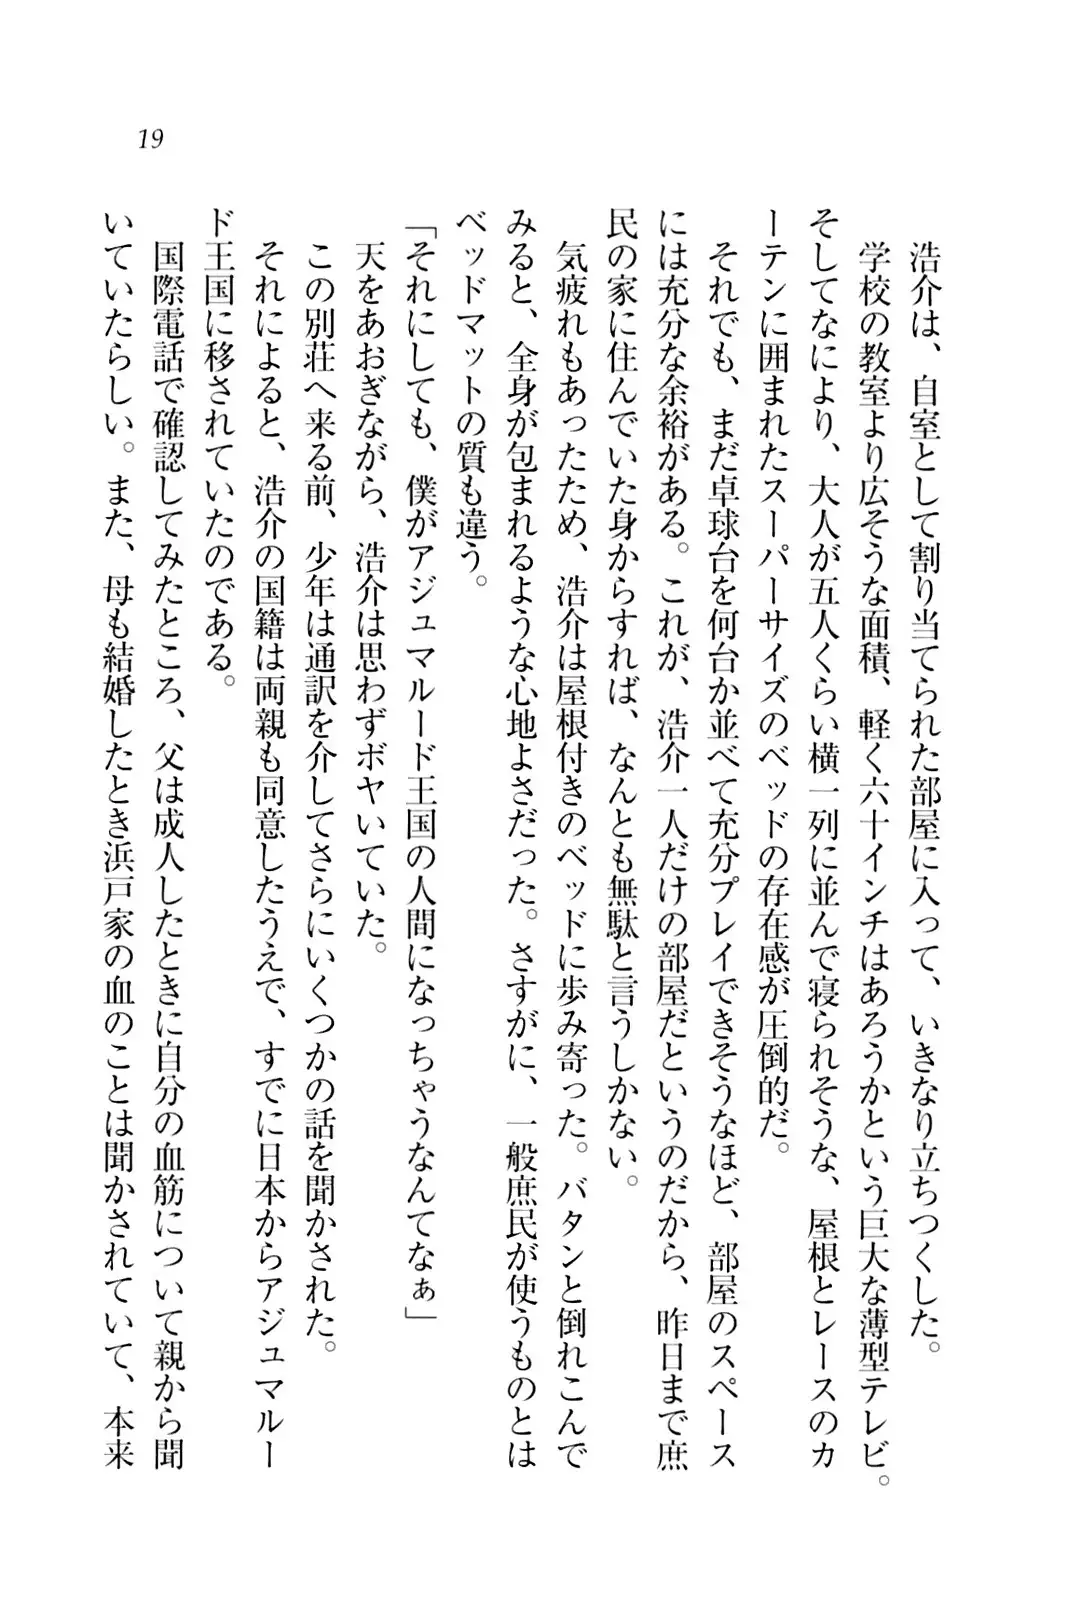 19
浩介は、自室として割り当てられた部屋に入って、いきなり立ちつくした。
学校の教室より広そうな面積、軽く六十インチはあろうかという巨大な薄型テレビ。
そしてなにより、大人が五人くらい横一列に並んで寝られそうな、屋根とレースのカ
ーテンに囲まれたスーパーサイズのベッドの存在感が圧倒的だ。
それでも、まだ卓球台を何台か並べて充分プレイできそうなほど、部屋のスペース
には充分な余裕がある。これが、浩介一人だけの部屋だというのだから、昨日まで庶
民の家に住んでいた身からすれば、なんとも無駄と言うしかない。
気疲れもあったため、浩介は屋根付きのベッドに歩み寄った。バタンと倒れこんで
みると、全身が包まれるような心地よさだった。さすがに、一般庶民が使うものとは
ベッドマットの質も違う。
「それにしても、僕がアジュマルード王国の人間になっちゃうなんてなぁ」
天をあおぎながら、浩介は思わずボヤいていた。
この別荘へ来る前、少年は通訳を介してさらにいくつかの話を聞かされた。
それによると、浩介の国籍は両親も同意したうえで、すでに日本からアジュマルー
ド王国に移されていたのである。
国際電話で確認してみたところ、父は成人したときに自分の血筋について親から聞
いていたらしい。また、母も結婚したとき浜戸家の血のことは聞かされていて、本来